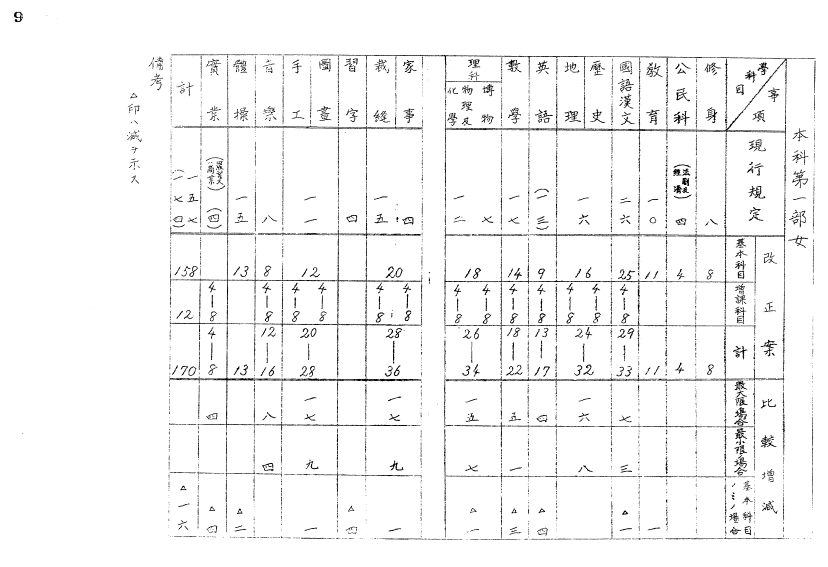 9
本科第一部女
學科目 事項
現行規定
改正案
基本科目
增課科目
計
比較增減
最大限場合
最小限場合
基本科目ノミノ場合
修身 八 8 8
公民科 (法制及經濟) 四 4 4
教育 一〇 11 11 一
國語漢文 二六 25 4—8 29—33 七 三 △一
歷史 地理 一六 16 4—8 4—8 24—32 一六 八
英語 (一三) 9 4—8 13—17 四 △四
數學 一七 14 4—8 18—22 五 一 △三
理科 博物 七 物理及化學 一二 18 4—8 4—8 26—34 一五 七 △一
家事 四 裁縫 一五 20 4—8 4—8 28—36 一七 九 一
習字 四 △四
圖畫 手工 一一 12 4—8 4—8 20—28 一七 九 一
音樂 八 8 4—8 12—16 八 四
體操 一五 13 13 △二
實業 (四) 4—8 4—8 四 △四
計 一五七 (一七四) 158 12 170 △一六
備考
△印ハ減ヲ示ス